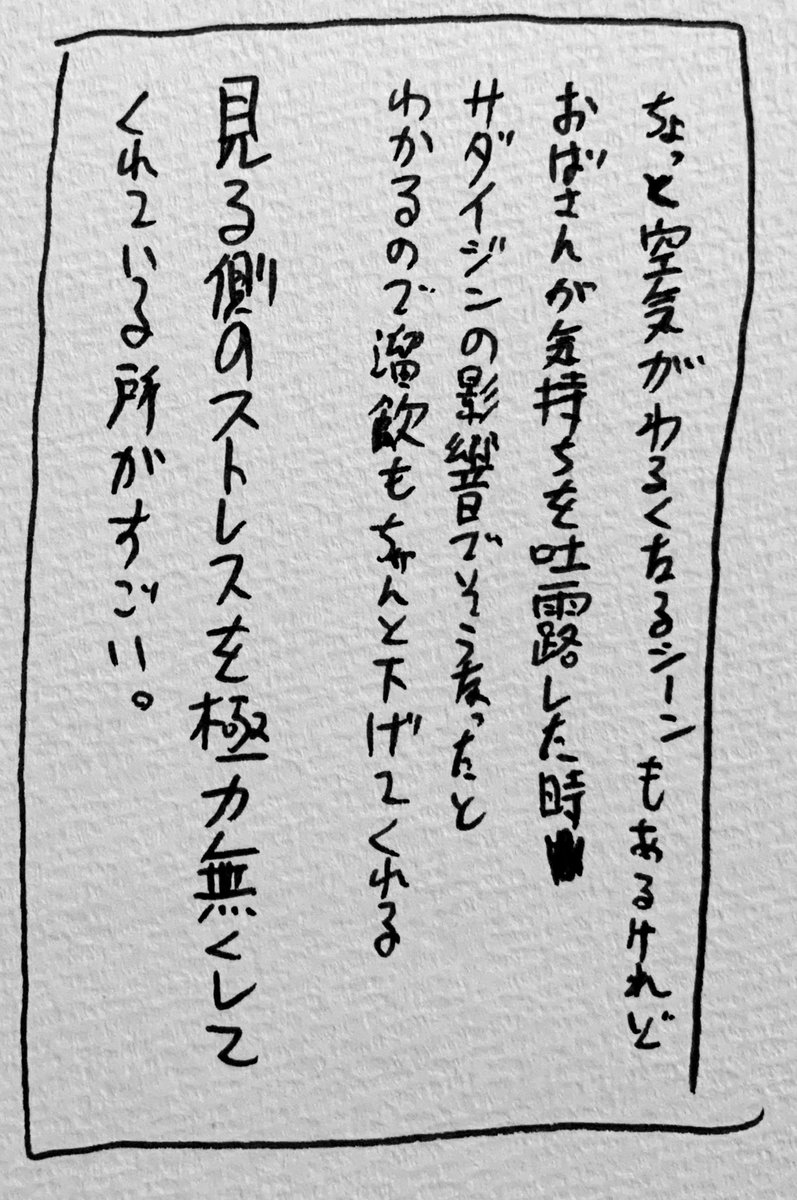 ちょっと空気がわるくなるシーンもあるけれど
おばさんが気持ちを吐露した時
サダイジンの影響でそうなったと
わかるので溜飲もちゃんと下げてくれる
見る側のストレスを極力無くして
くれている所がすごい。